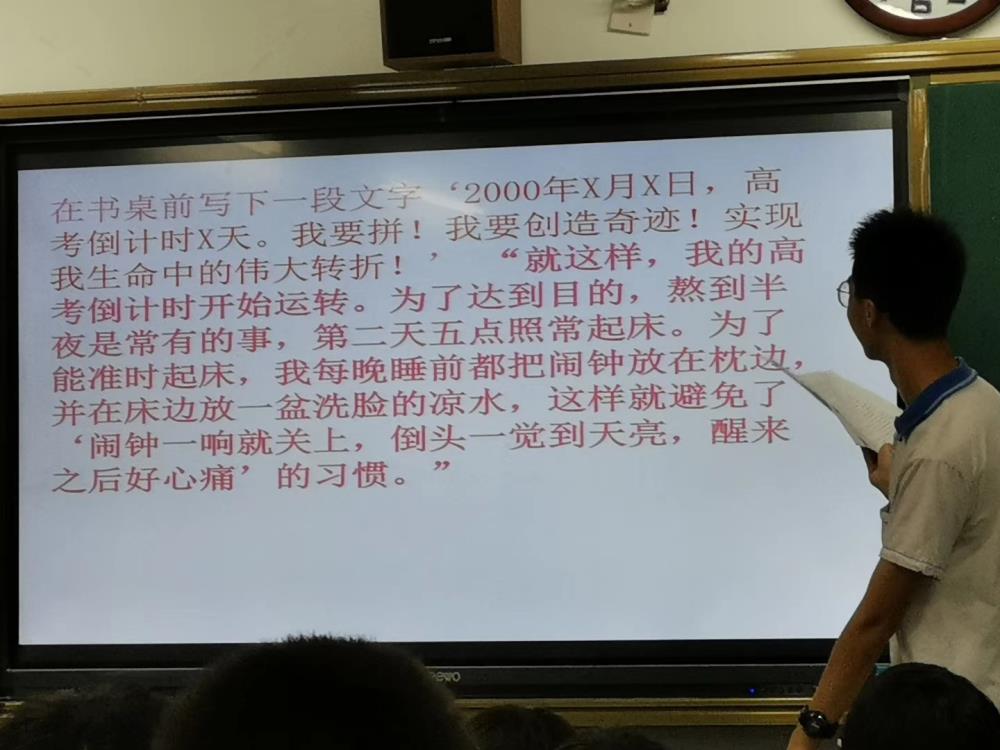 在书桌前写下一段文字‘2000年X月X日，高
考倒计时X天。我要拼！我要创造奇迹！实现
我生命中的伟大转折！’ “就这样，我的高
考倒计时开始运转。为了达到目的，熬到半
夜是常有的事，第二天五点照常起床。为了
能准时起床，我每晚睡前都把闹钟放在枕边，
并在床边放一盆洗脸的凉水，这样就避免了
‘闹钟一响就关上，倒头一觉到天亮，醒来
之后好心痛’的习惯。”